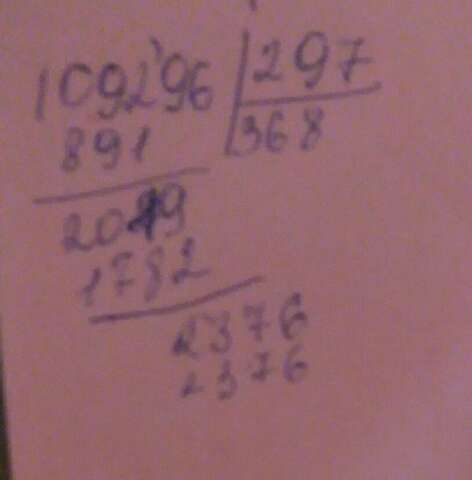 109296 297
891 368
2019
1782
2376
2376